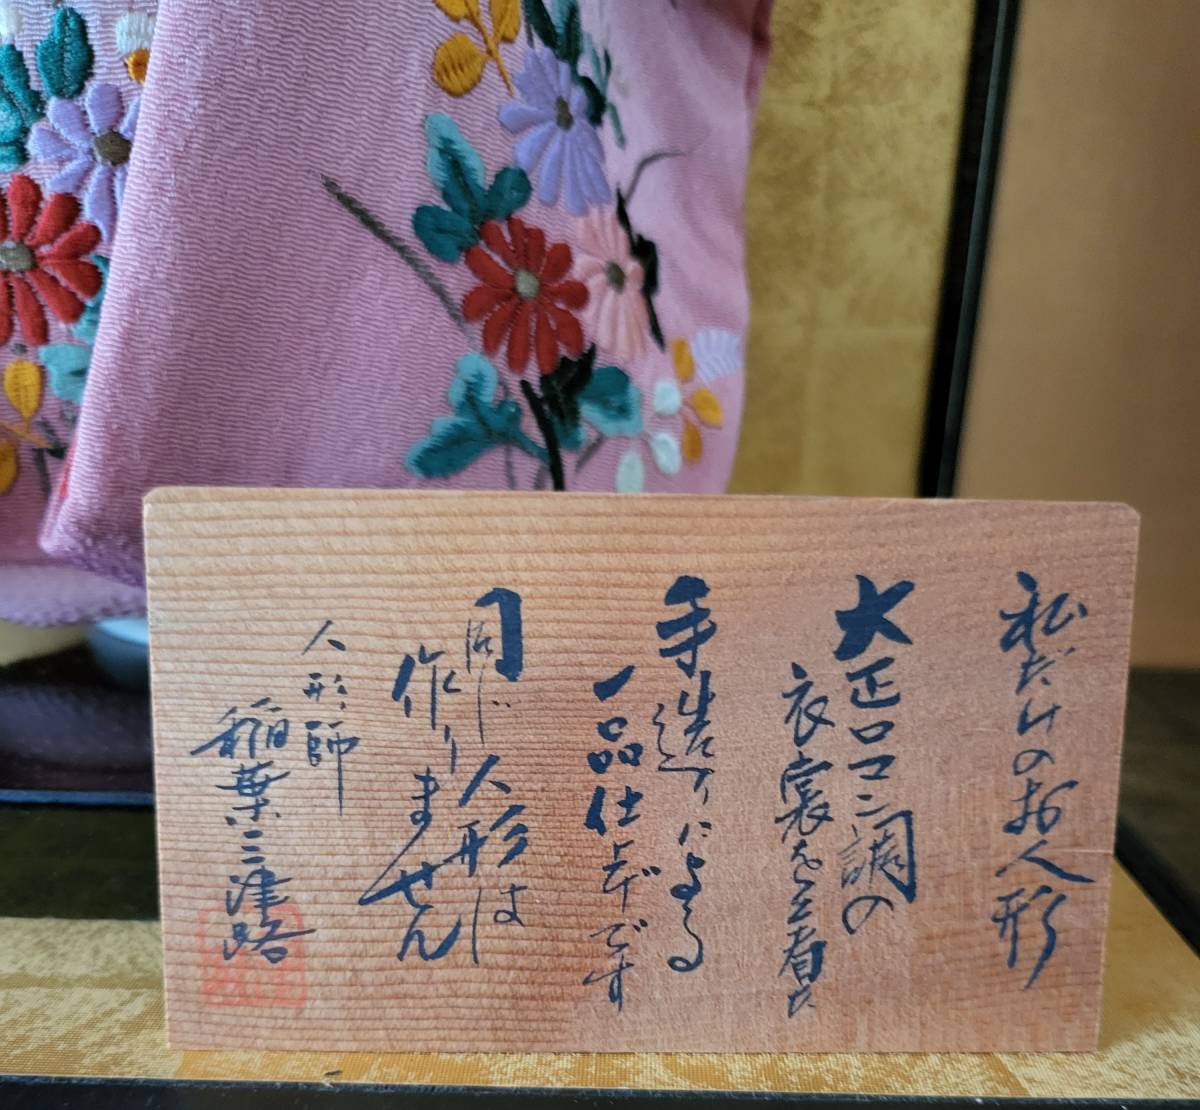 私だけのお人形
大正ロマン調の
衣裳を着た
手造りによる
一品仕上げです
同じ人形は
作りません
人形師
稲葉三津路